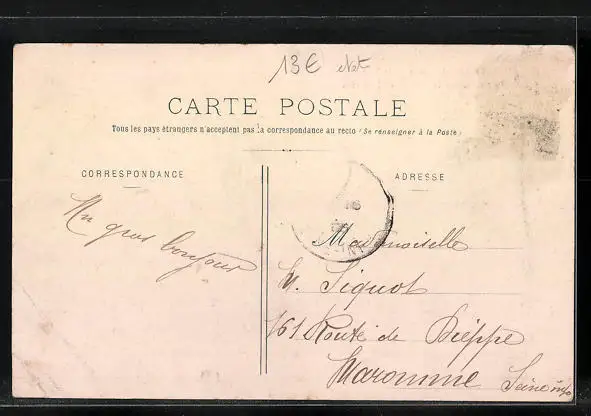 13€ Net
CARTE POSTALE
Tous les pays étrangers n'acceptent pas la correspondance au recto (Se renseigner à la Poste)
CORRESPONDANCE
ADRESSE
Un gros bonjour
Mademoiselle
M. Siguot
161 Route de Dieppe
Maromme Seine infre